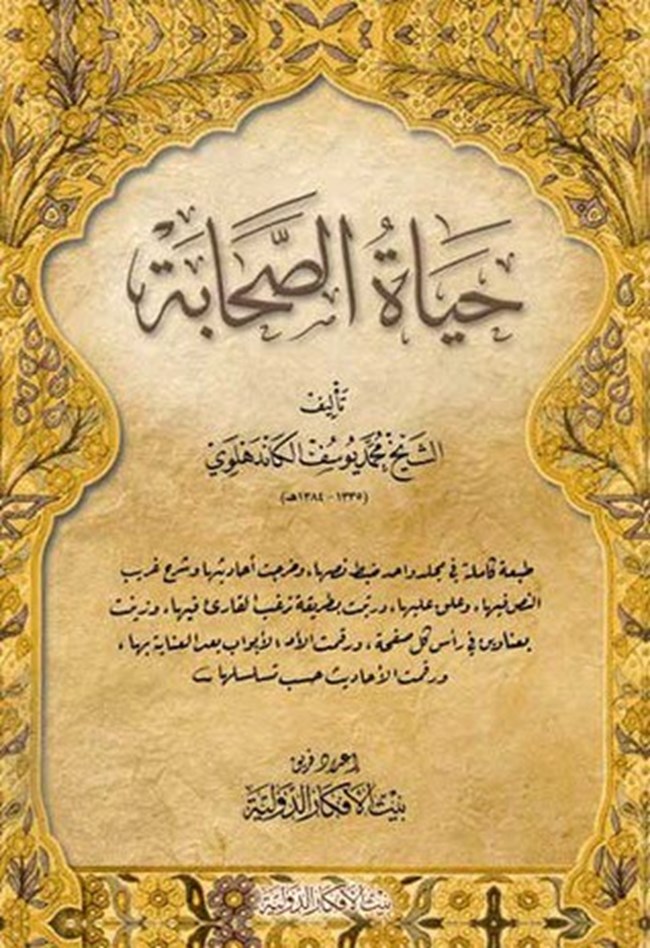 حَيَاةُ الصَّحَابَة
تأليف
الشيخ محمد يوسف الكاندهلوي
(١٣٣٥ - ١٣٨٤هـ)
طبعة كاملة في مجلد واحد ضبط نصها، وخرجت أحاديثها وشرح غريب
النص فيها، وعلق عليها، ورتبت بطريقة ترغب القارئ فيها، وزينت
بعناوين في رأس كل صفحة، ورقمت الأبواب بعد العناية بها،
ورقمت الأحاديث حسب تسلسلها
إعداد فريق
بيت الأفكار الدولية
بيت الأفكار الدولية